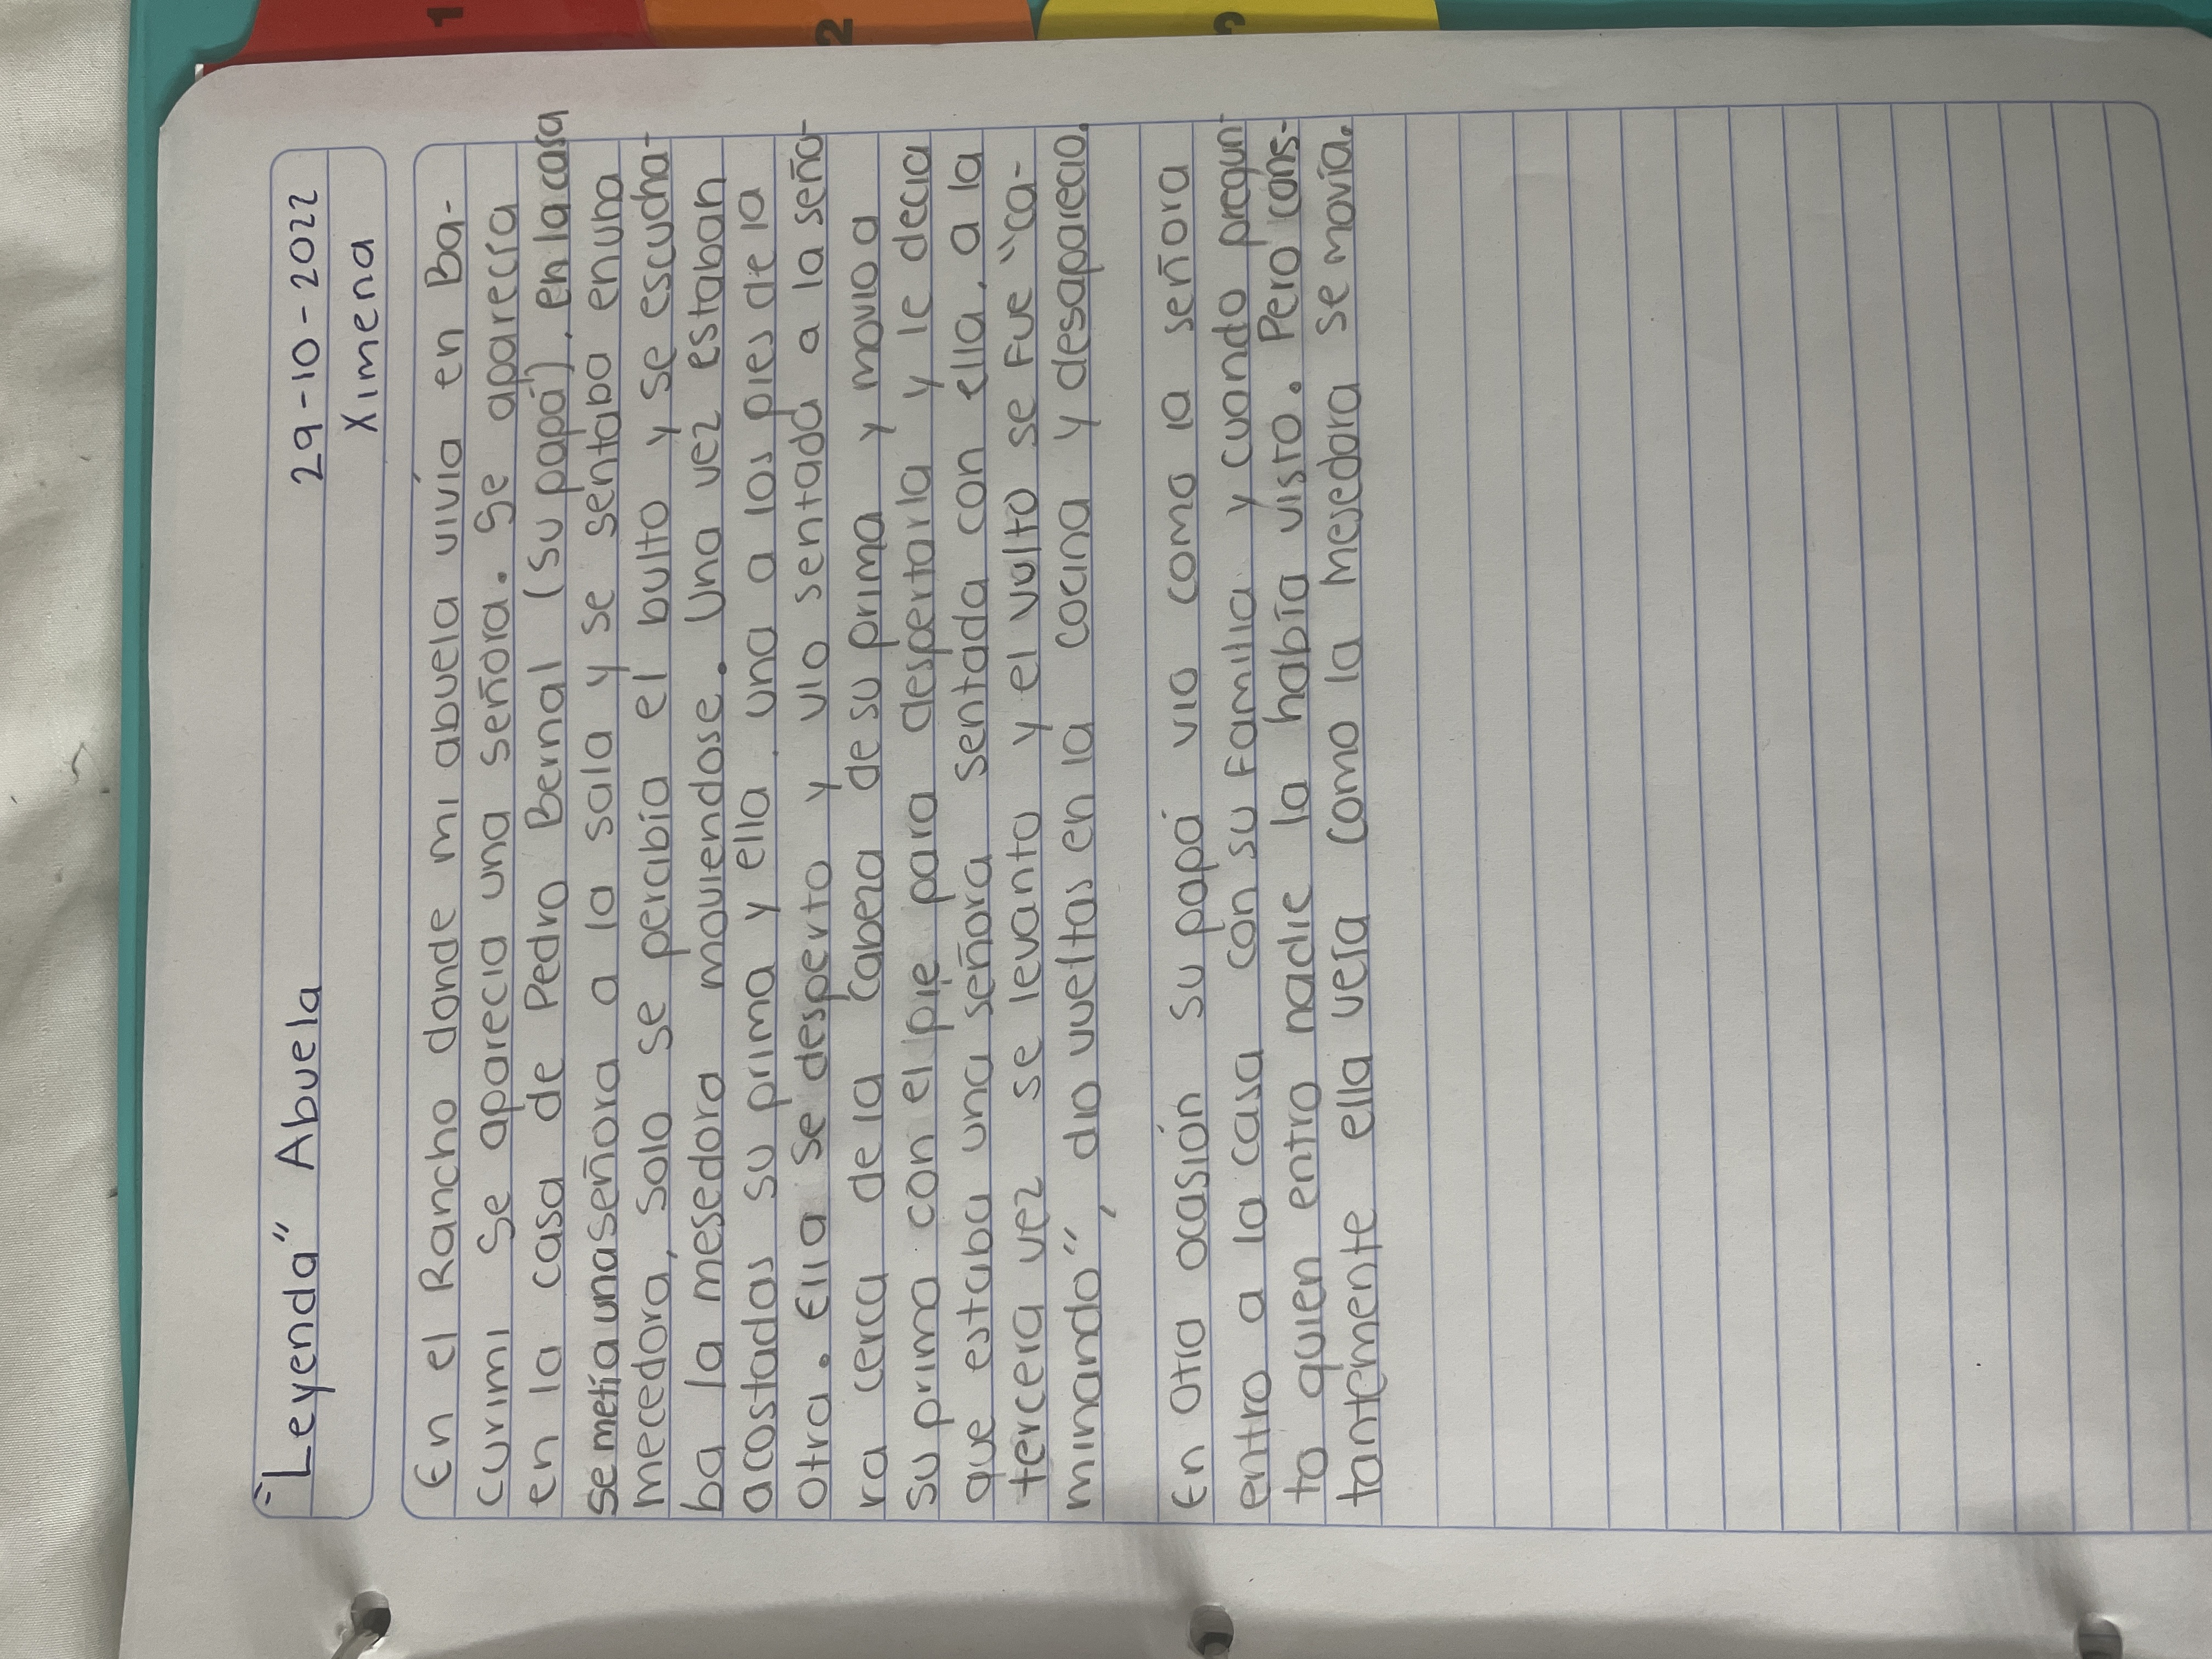 1
2
3
"Leyenda" Abuela 29-10-2022
Ximena
En el Rancho donde mi abuela vivía en Ba-
curimi se aparecia una señora. Se aparecía
en la casa de Pedro Bernal (su papá), en la casa
se metía una señora a la sala y se sentaba en una
mecedora, solo se percibía el bulto y se escucha-
ba la mesedora moviendose. Una vez estaban
acostadas su prima y ella una a los pies de la
otra. Ella se desperto y vio sentada a la seño-
ra cerca de la cabeza de su prima y movio a
su prima con el pie para despertarla y le decia
que estaba una señora sentada con ella, a la
tercera vez se levanto y el vulto se fue "ca-
minando", dio vueltas en la cocina y desaparecio.
En otra ocasión su papá vio como la señora
entro a la casa con su familia y cuando pregun-
to quien entro nadie la había visto. Pero cons-
tantemente ella veía como la mesedora se movía.